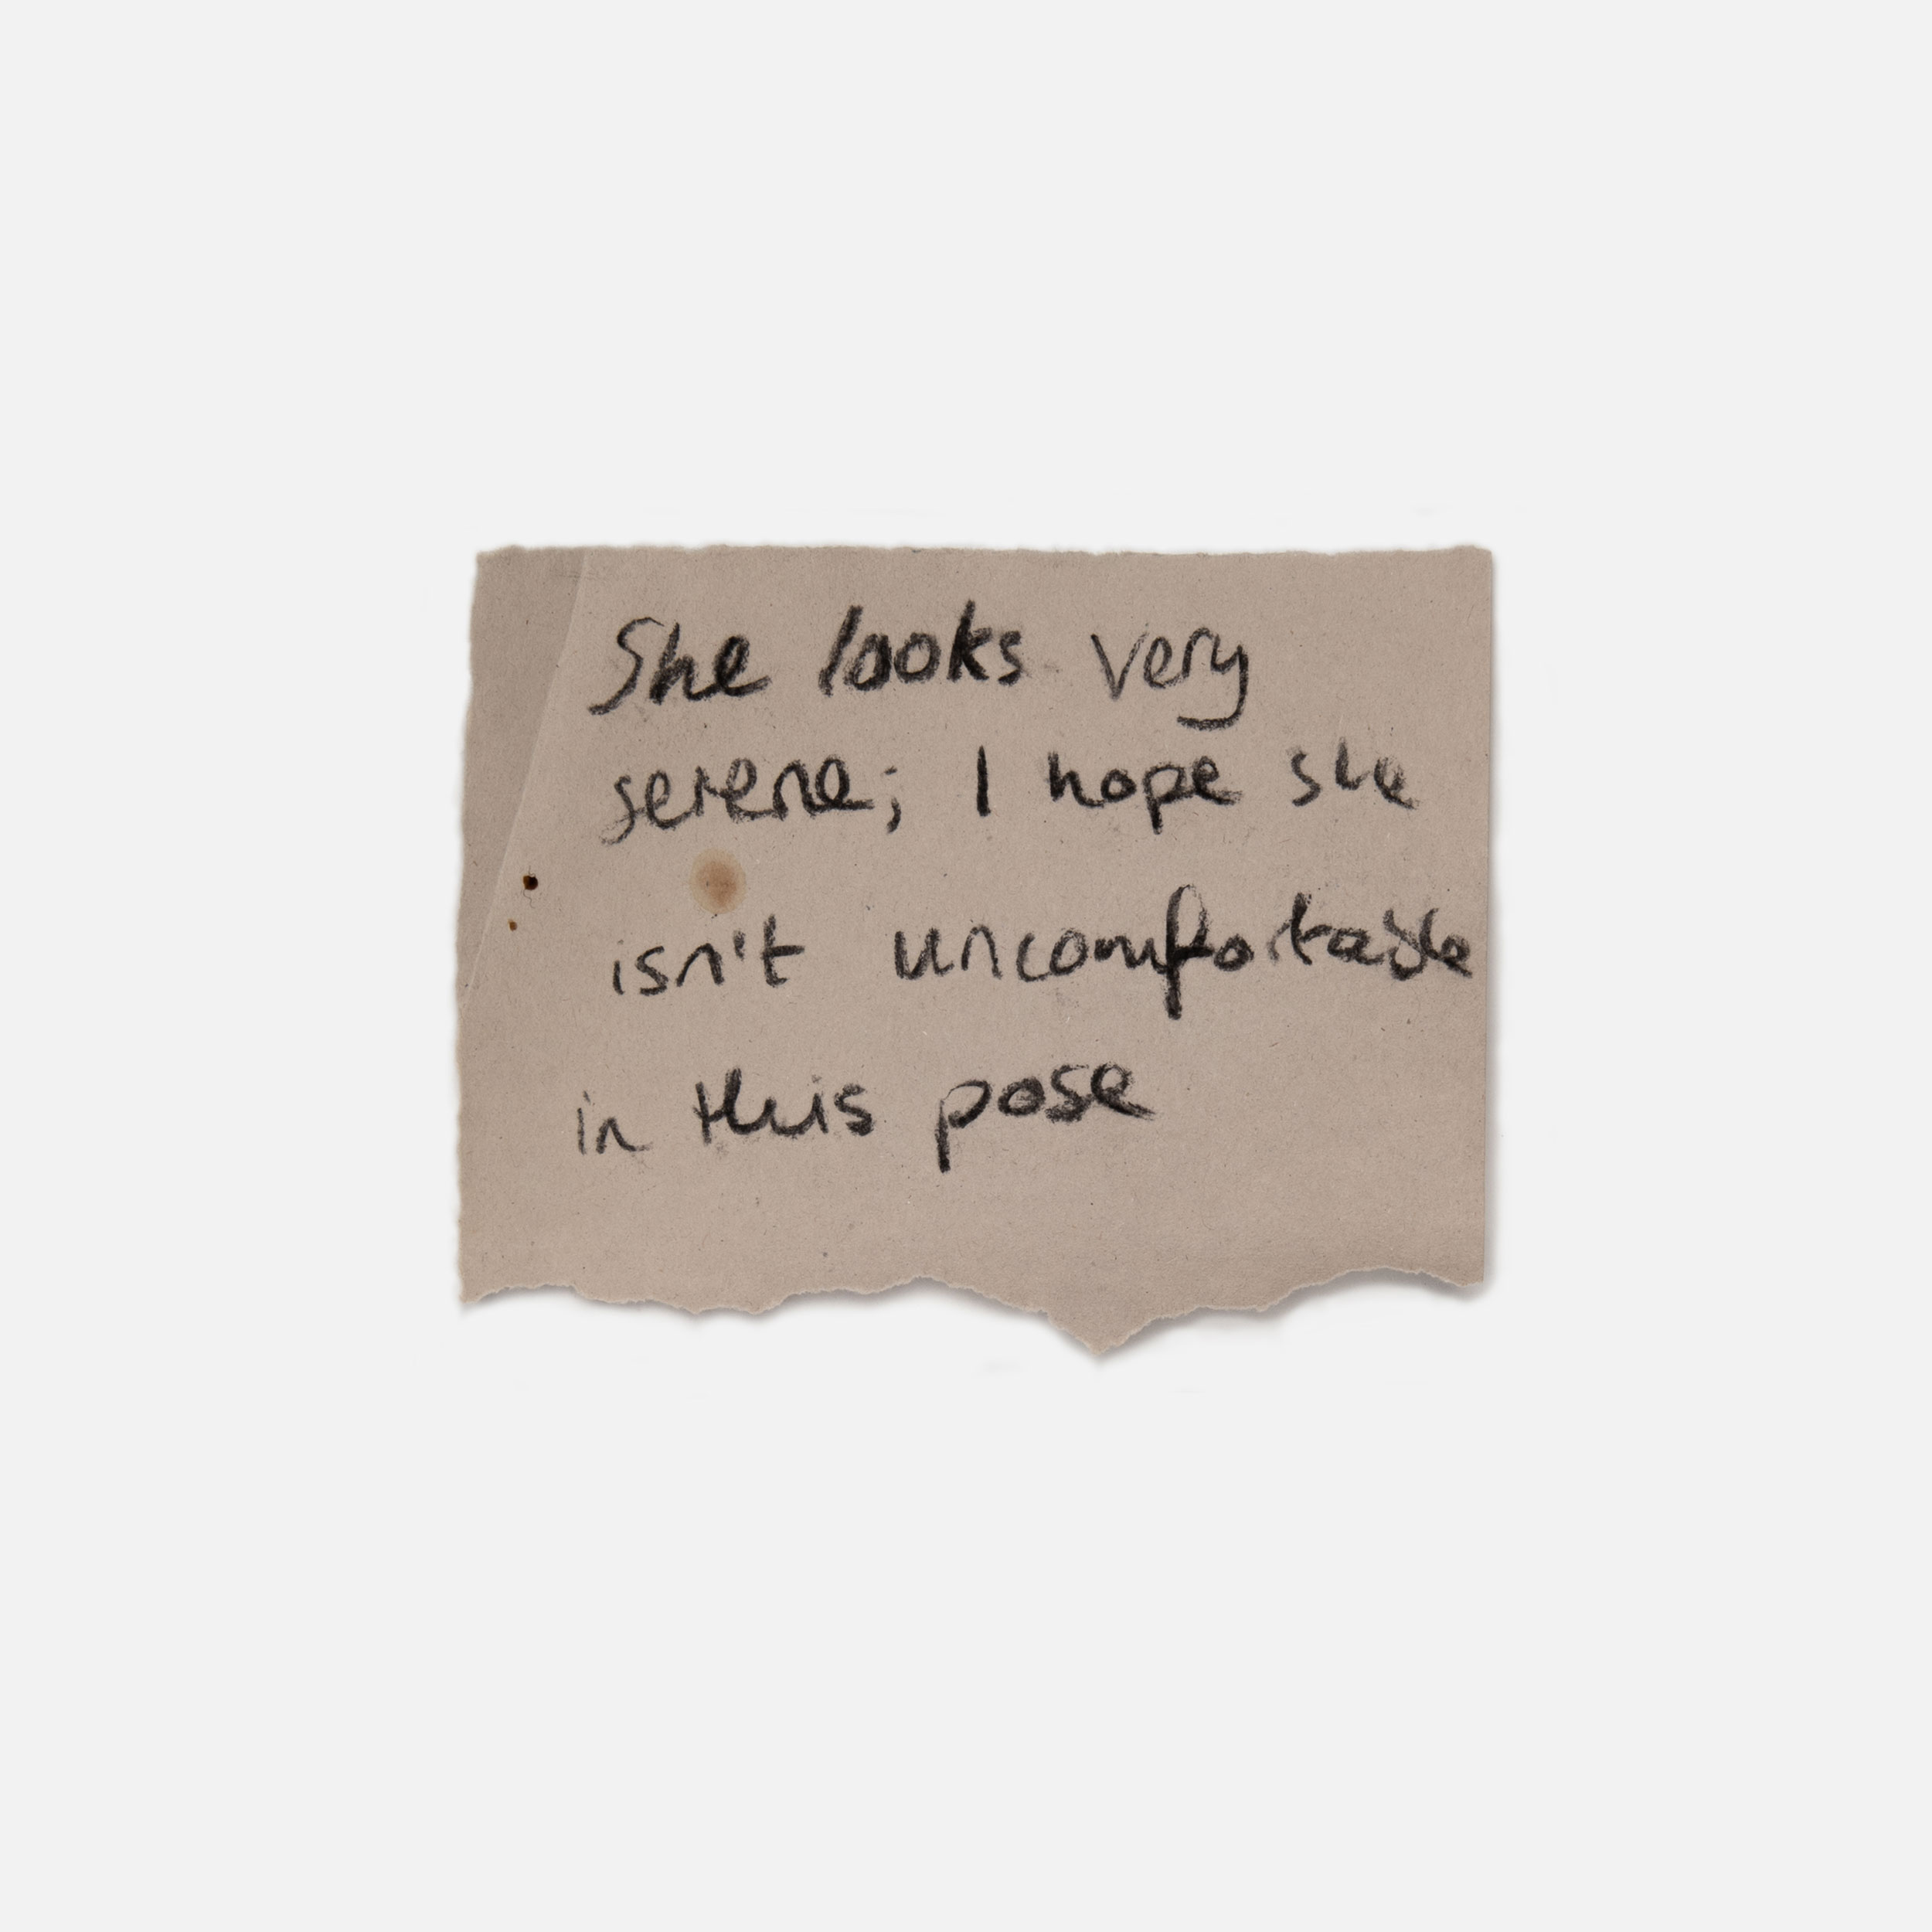 She looks very
serene; I hope she
isn't uncomfortable
in this pose